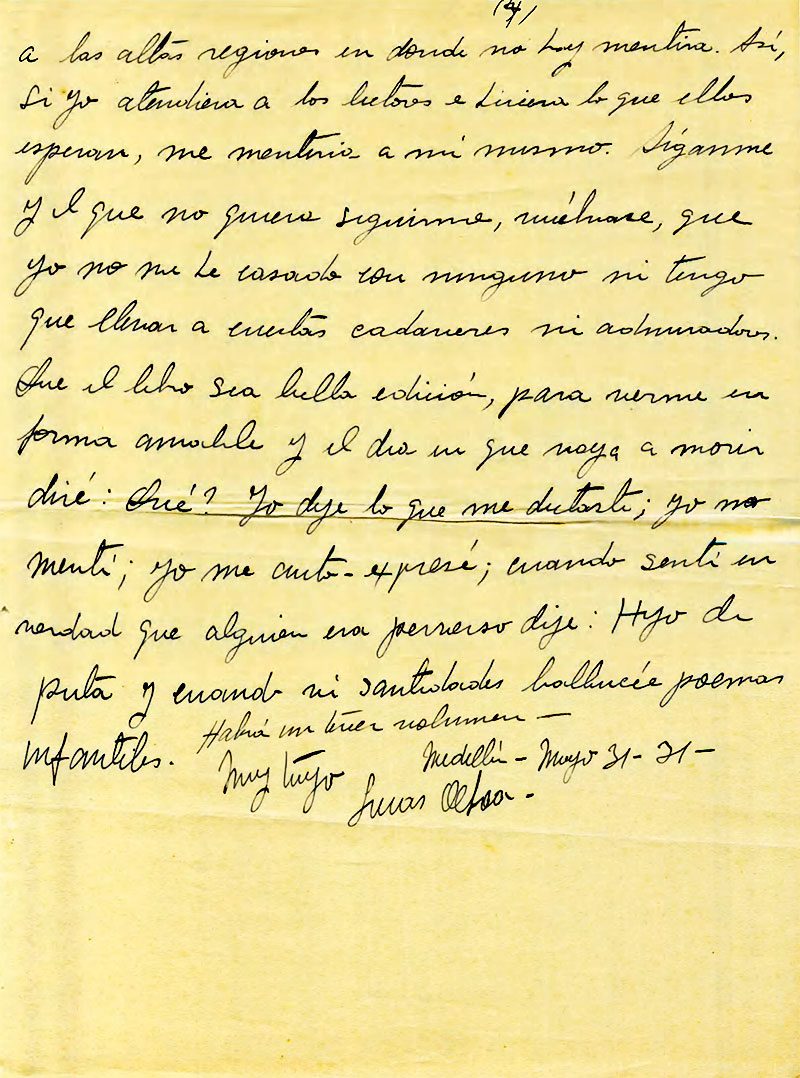 (4)
a las altas regiones en donde no hay mentira. Así,
si yo atendiera a los lectores e hiciera lo que ellos
esperan, me mentiría a mí mismo. Síganme
y el que no quiera seguirme, vuélvase, que
yo no me he casado con ninguno ni tengo
que llevar a cuestas cadáveres ni admiradores.
Que el libro sea bella edición, para verme en
forma amable y el día en que vaya a morir
diré: Qué? Yo dije lo que me dictaste; yo no
mentí; yo me auto-expresé; cuando sentí en
verdad que alguien era perverso dije: Hijo de
puta y cuando vi santidades balbucée poemas
infantiles. Habrá un tercer volumen —
Muy tuyo Medellín - Mayo 31 - 31 -
Lucas Ochoa -